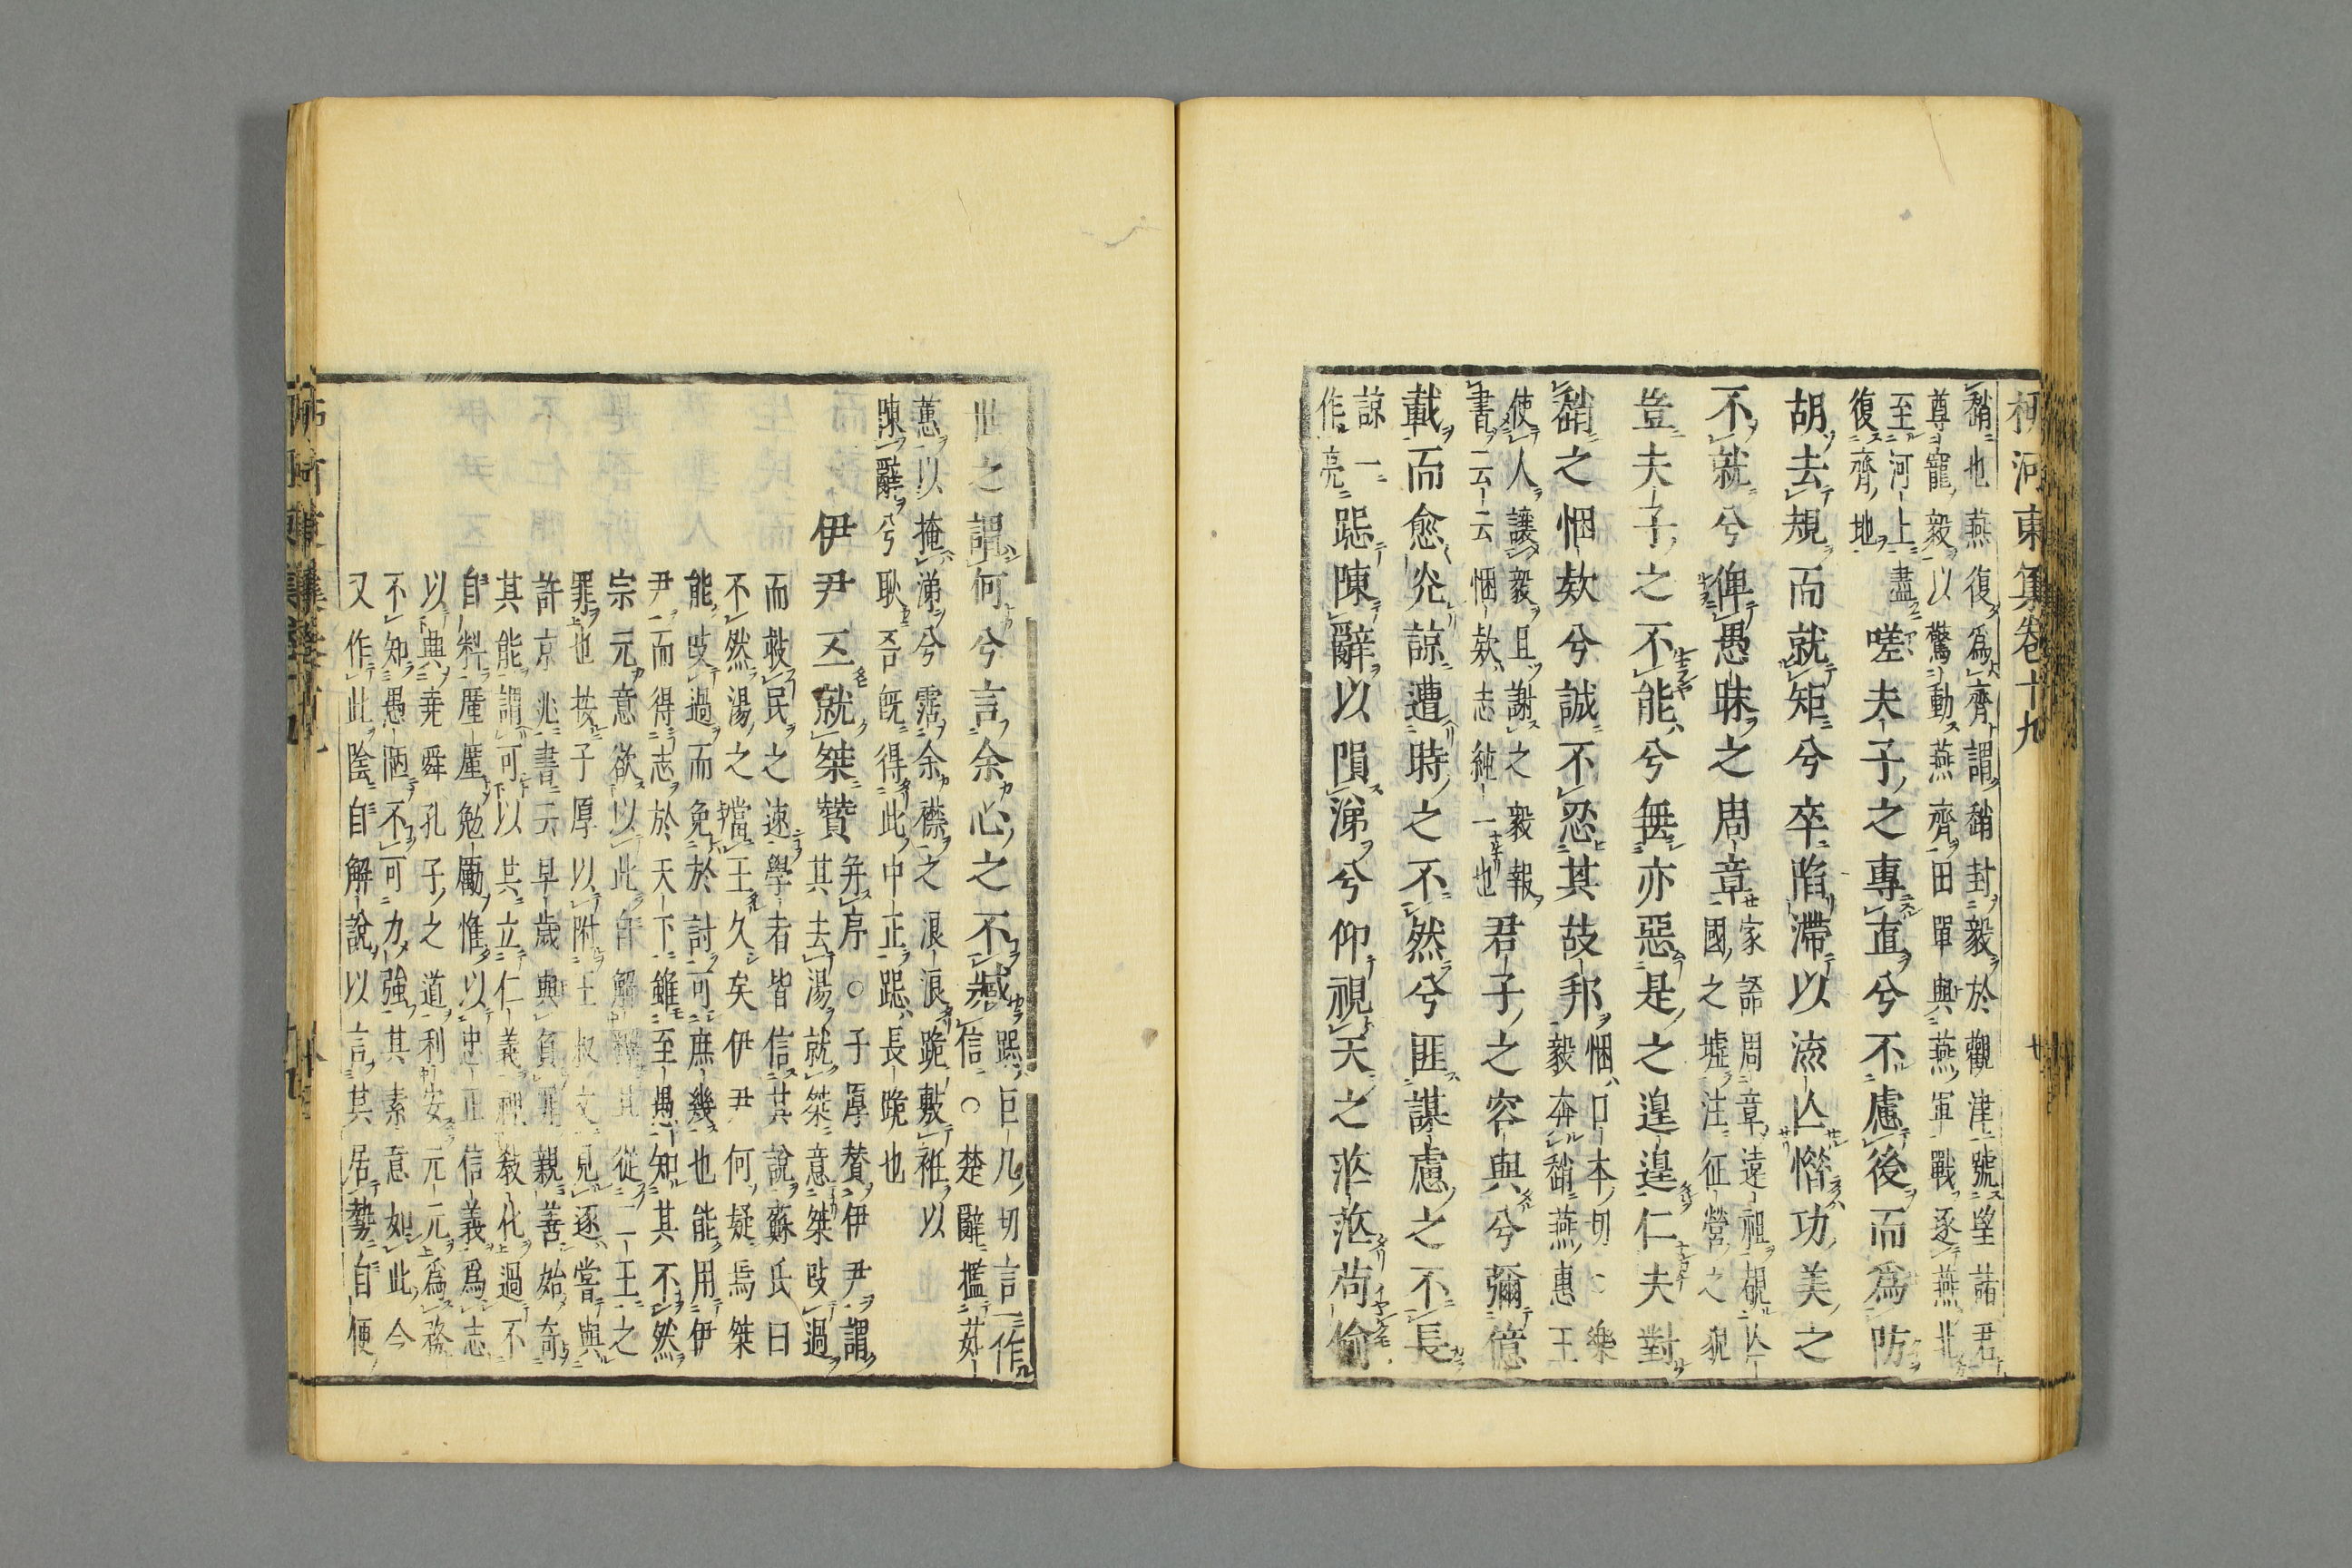 柳河東集卷十九
趙也燕復爲齊謂趙封毅於觀津號望諸君
尊寵毅以驚動燕齊田單與燕軍戰逐燕北
至河上盡
復齊地
嗟夫子之專直兮不慮後而爲防
胡去規而就矩兮卒陷滯以流亡惜功美之
不就兮俾愚昧之周章
家語周章遠祖覩亾
國之墟注征營之貌
豈夫子之不能兮無亦惡是之遑遑仁夫對
趙之悃款兮誠不忍其故邦
悃口本切○樂
毅奔趙燕惠王
使人讓毅且謝之毅報
書云云悃款志純一也
君子之容與兮彌億
載而愈光諒遭時之不然兮匪謀慮之不長
諒一
作亮
跽陳辭以隕涕兮仰視天之茫茫苟偷
世之謂何兮言余心之不臧
跽巨几切言一作
信○楚辭檻茹
蕙以掩涕兮霑余襟之浪浪跪敷衽以
陳辭兮耿吾既得此中正跽長跪也
伊尹五就桀贊
并序○子厚贊伊尹謂
其去湯就桀意桀改過
而救民之速學者皆信其說蘇氏曰
不然湯之當王久矣伊尹何疑焉桀
能改過而免於討可庶幾也能用伊
尹而得志於天下雖至愚知其不然
宗元意欲以此自解
從二王之
罪也按子厚以附王叔文見逐嘗與
許京兆書云早歲與負罪親善始奇
其能謂可以共立仁義裨敎化過不
自料勤勤勉勵惟以忠正信義爲志
以興堯舜孔子之道利安元元爲務
不知愚陋不可力強其素意如此今
又作此陰自解說以言其居勢自便